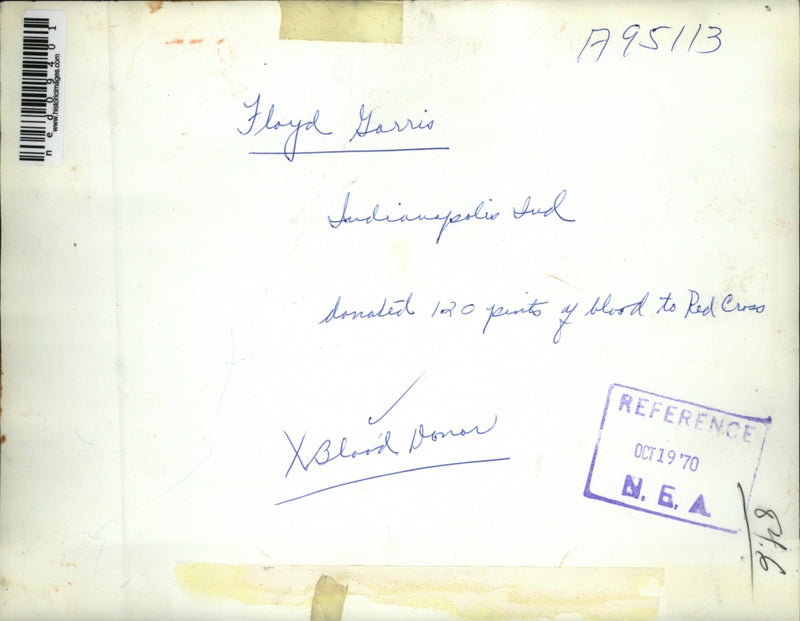 A95113
Floyd Garris
Indianapolis Ind
donated 120 pints of blood to Red Cross
X Blood Donor
REFERENCE
OCT 19 '70
N. E. A.
ned09401
www.historicimages.com